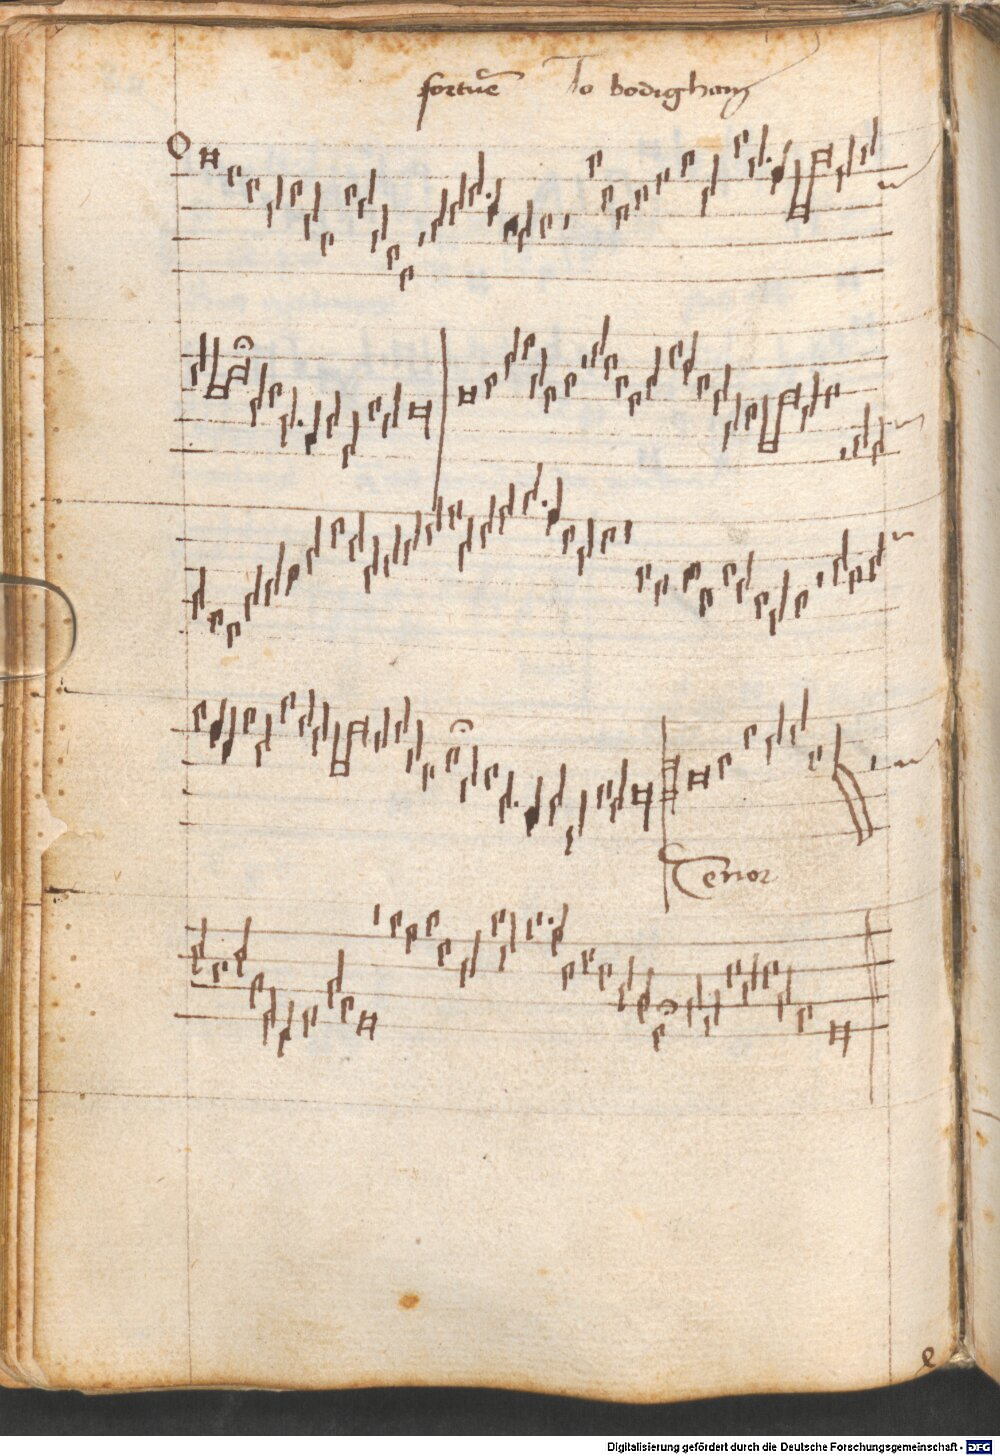 fortūe Jo bodigham
Tenor
e
Digitalisierung gefördert durch die Deutsche Forschungsgemeinschaft - DFG